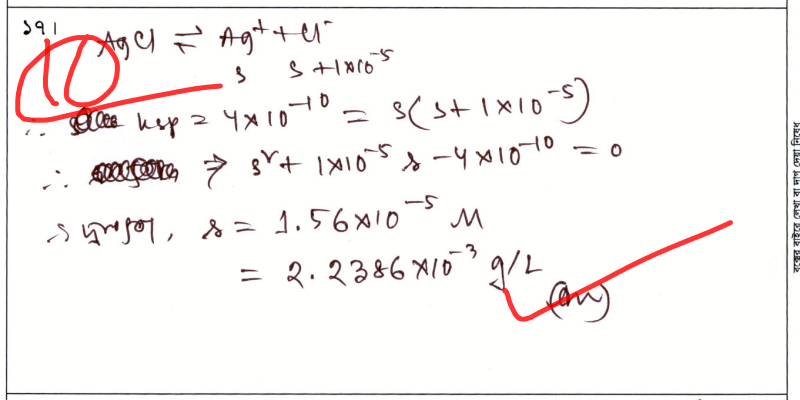 ১৭।
10
AgCl ⇌ Ag⁺ + Cl⁻
s s + 1×10⁻⁵
∴ Ksp = 4×10⁻¹⁰ = s(s + 1×10⁻⁵)
∴ ⇒ s² + 1×10⁻⁵ s − 4×10⁻¹⁰ = 0
∴ দ্রাব্যতা, s = 1.56×10⁻⁵ M
= 2.2386×10⁻³ g/L
(Ans)
বক্সের বাইরে লেখা বা দাগ দেয়া নিষেধ